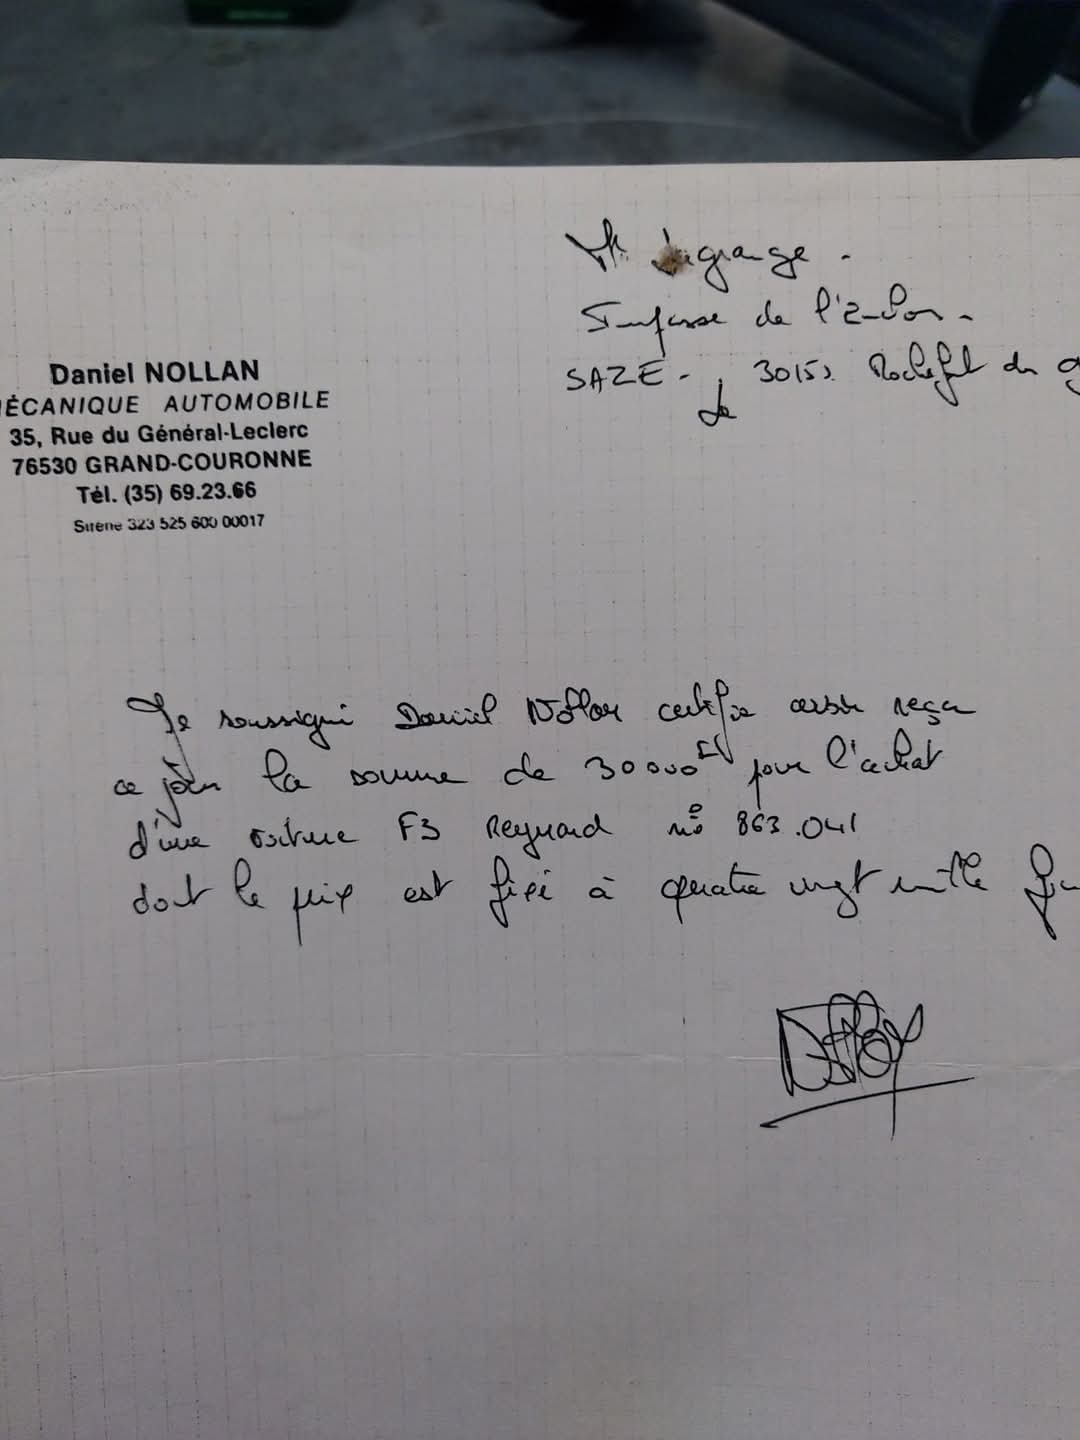 Mr Lagrange.
Impasse de l'Enclos.
SAZE - 30153 Rochefort du g
Le
Daniel NOLLAN
MÉCANIQUE AUTOMOBILE
35, Rue du Général-Leclerc
76530 GRAND-COURONNE
Tél. (35) 69.23.66
Sirène 323 525 600 00017
Je soussigné Daniel Nollan certifie avoir reçu
ce jour la somme de 30000 pour l'achat
d'une voiture F3 Reynard n° 863.041
dont le prix est fixé à quatre vingt mille